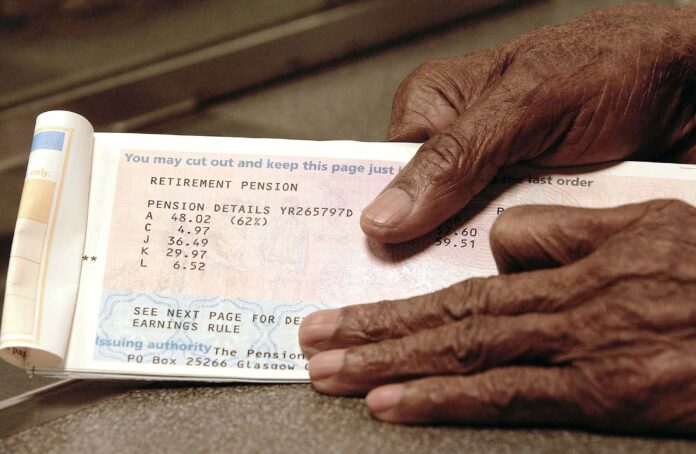 only.
You may cut out and keep this page just
the last order
RETIREMENT PENSION
PENSION DETAILS YR265797D
A 48.02 (62%)
C 4.97
J 36.49
K 29.97
L 6.52
39.51
**
SEE NEXT PAGE FOR
EARNINGS RULE
Issuing authority The Pension
PO Box 25266 Glasgow